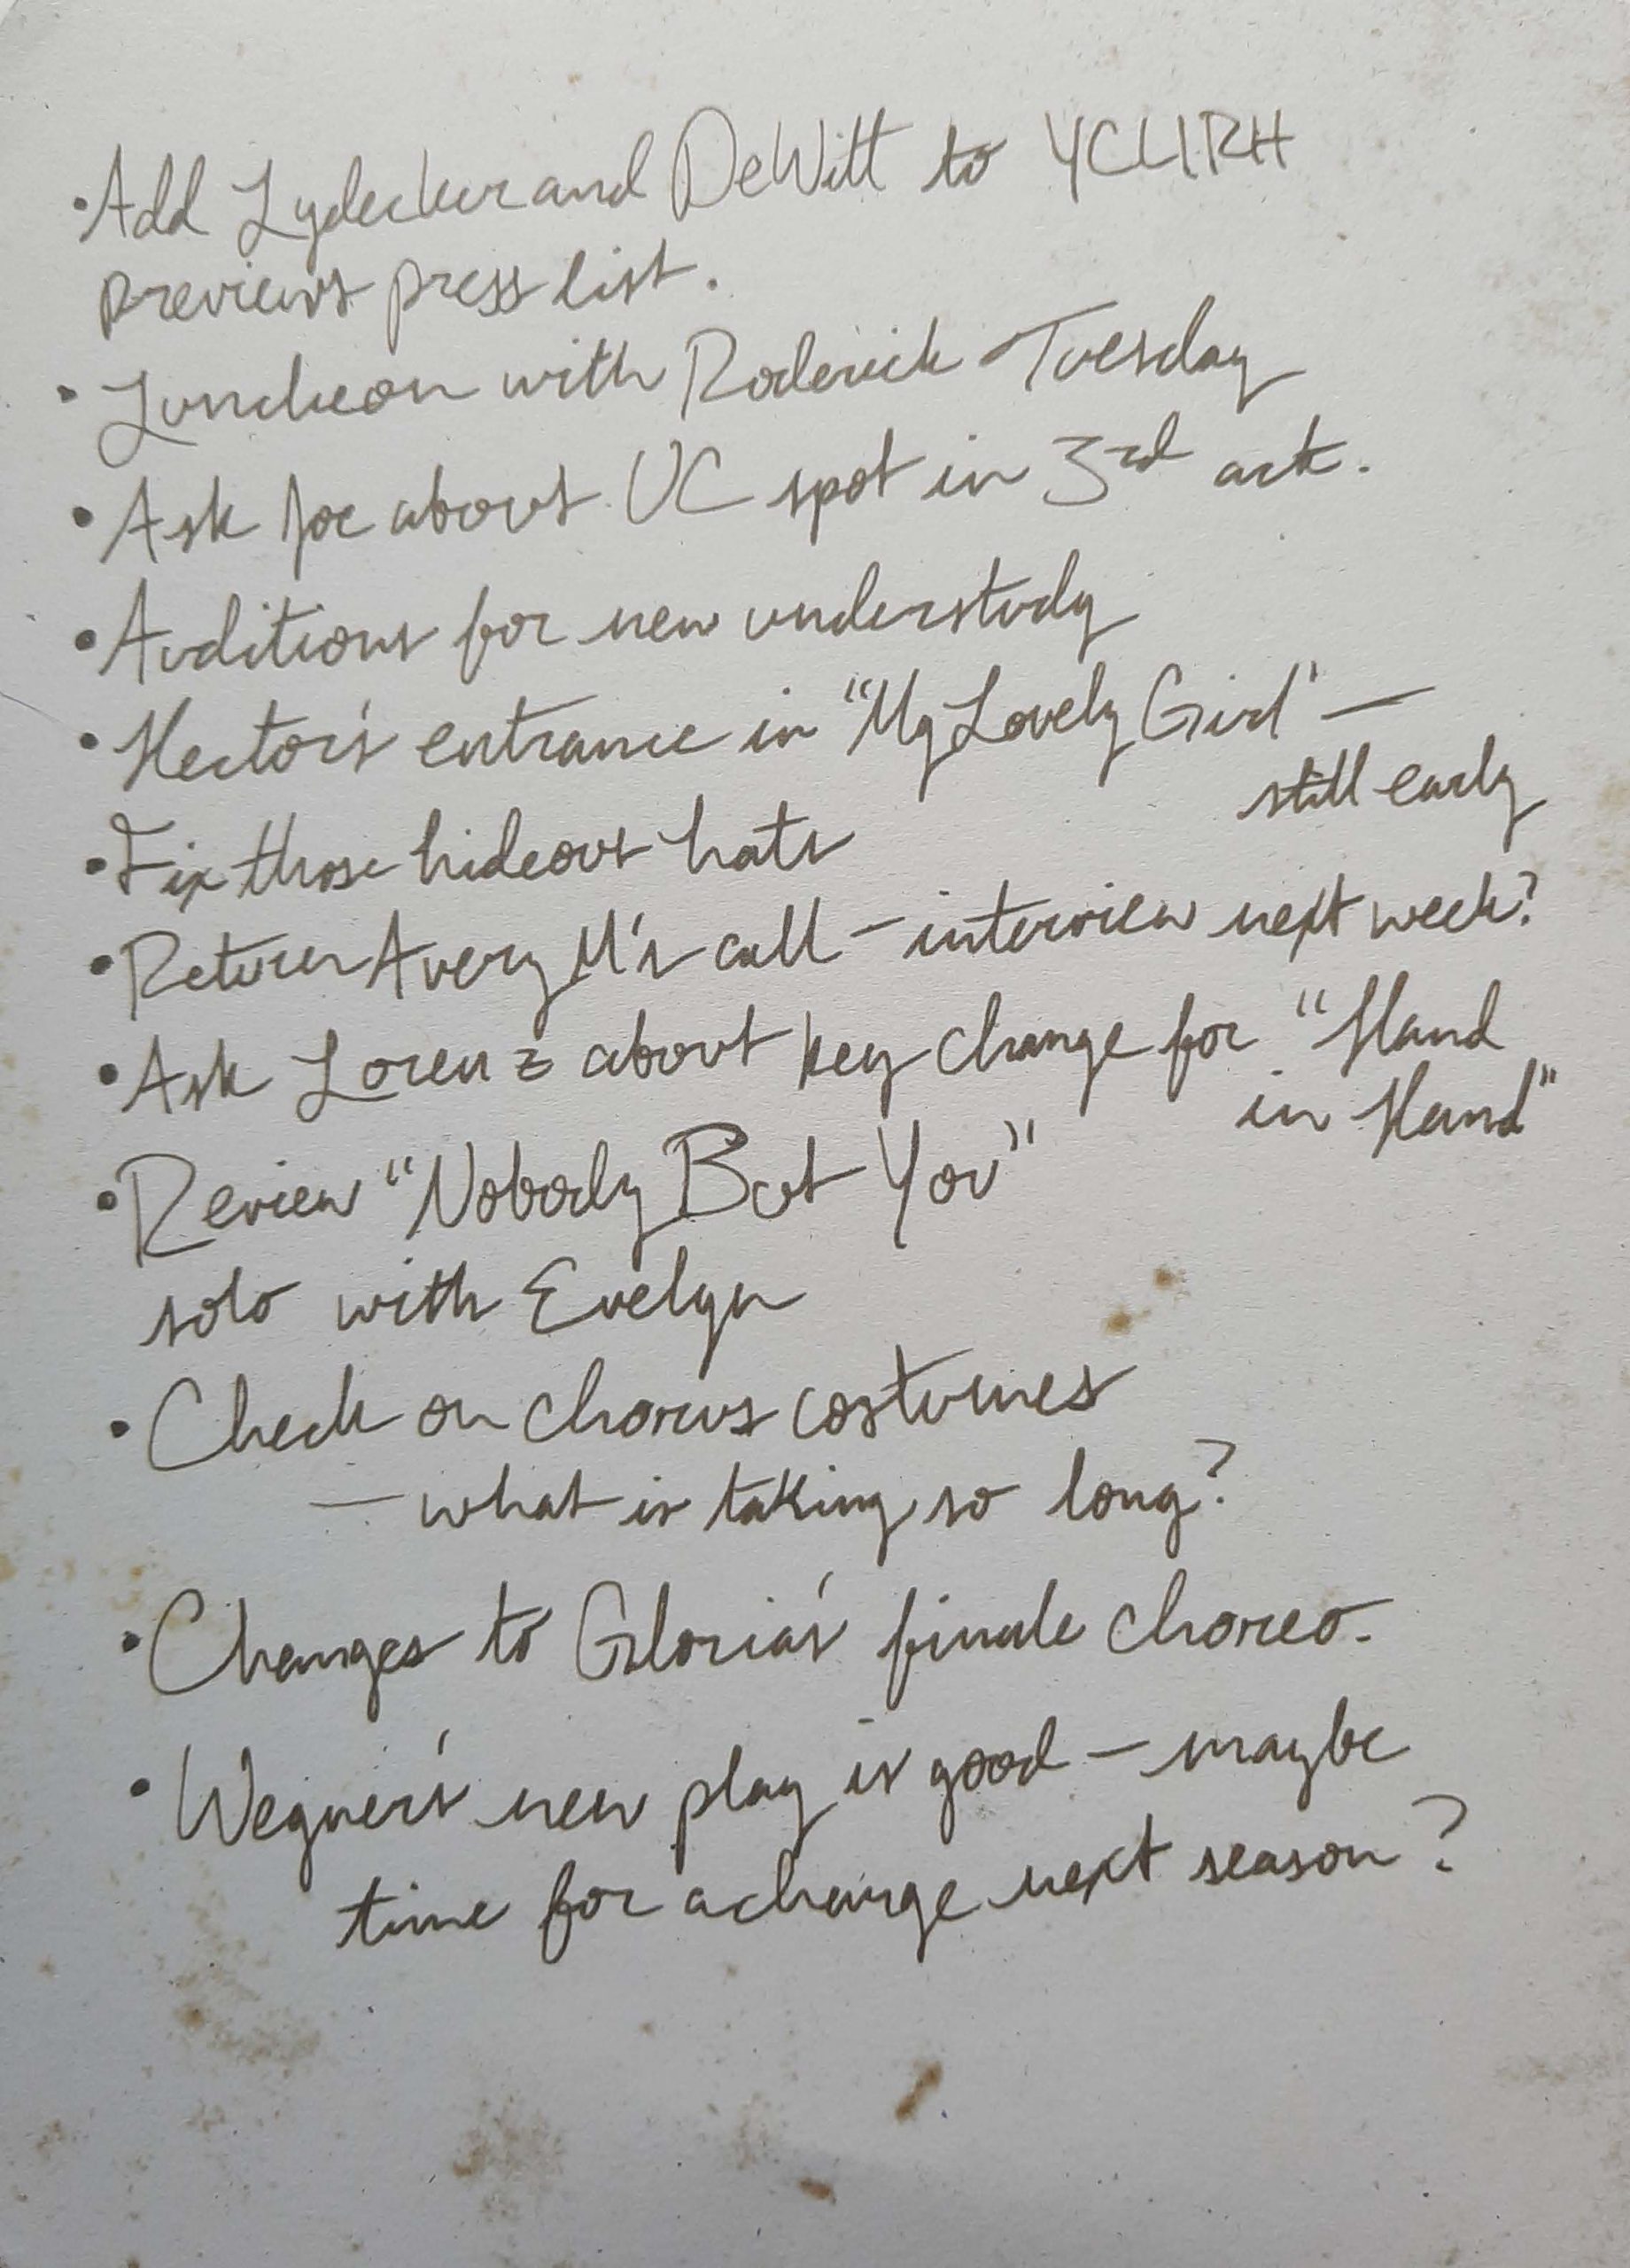 • Add Lydecker and DeWitt to YCLIRH
previews press list.
• Luncheon with Roderick Tuesday
• Ask Joe about UC spot in 3rd act.
• Auditions for new understudy
• Hector's entrance in "My Lovely Girl" —
still early
• Fix those hideous hats
• Return Avery M's call — interview next week?
• Ask Lorenz about key change for "Hand
in Hand"
• Review "Nobody But You"
solo with Evelyn
• Check on chorus costumes
— what is taking so long?
• Changes to Gloria's finale choreo.
• Wegner's new play is good — maybe
time for a change next season?